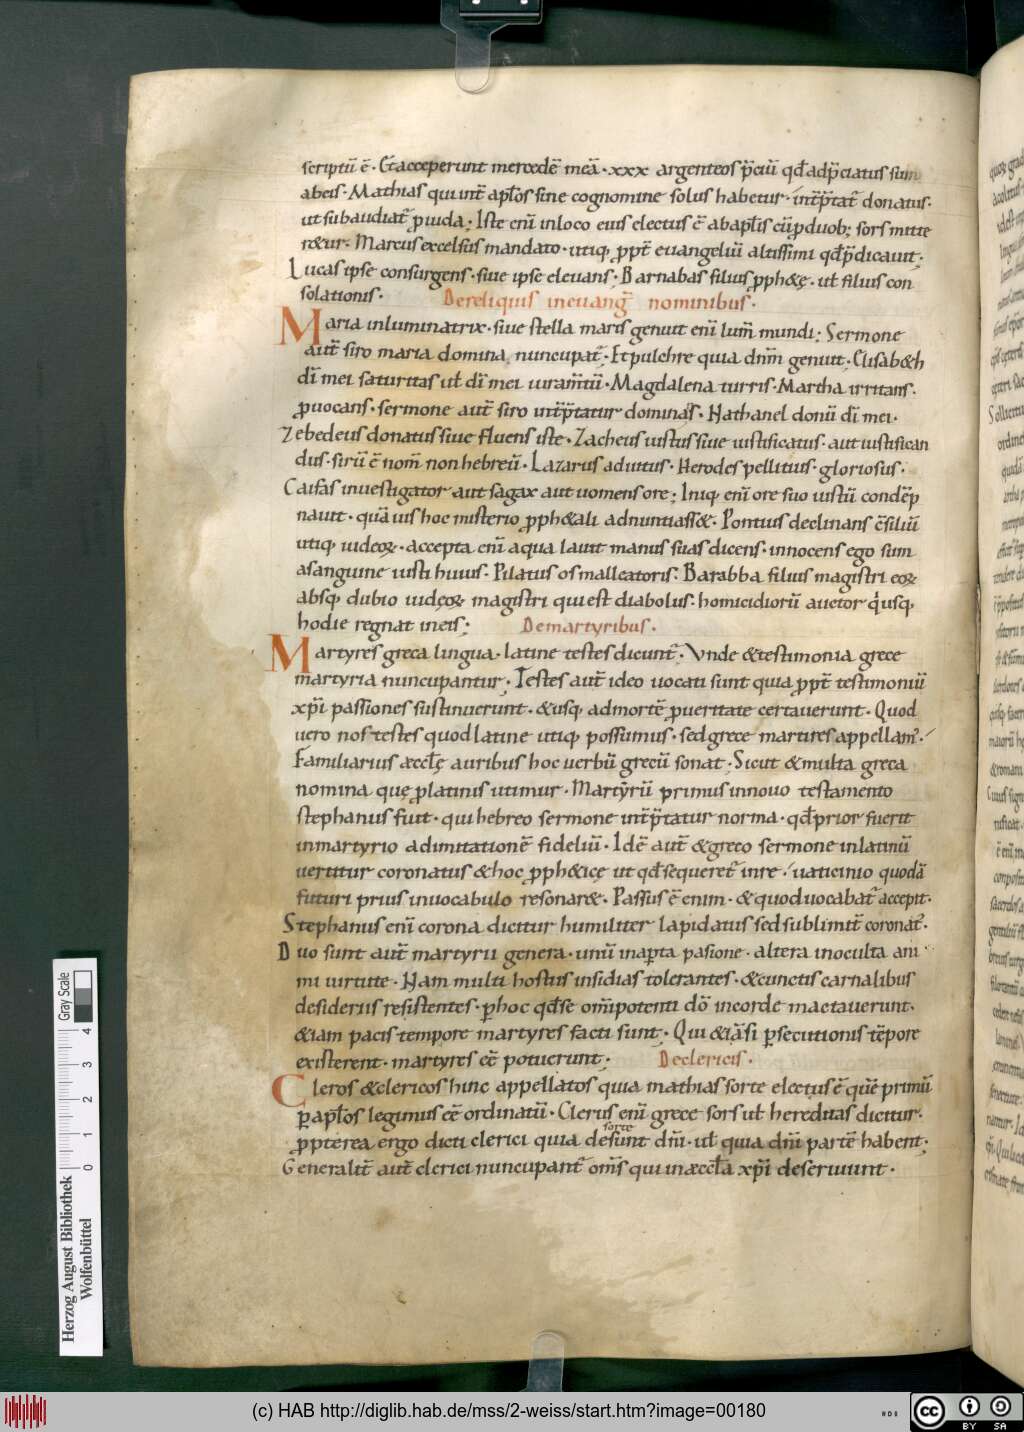 scriptū ē · & acceperunt mercedē meā · xxx argenteos p̄ciū qđ adp̄ciatus sum
abeis · Mathias qui int̄ apl̄os sine cognomine solus habetur · int̄p̄tat̄ donatus ·
ut subaudiat̄ ꝓiuda ; Iste enī inloco eius electus ē abapl̄is cū ꝓduob; sors mitte
r&ur · Marcus excelsus mandato · utiq; ꝓpt̄ euangeliū altissimi qđ p̄dicauit ;
Lucas ipse consurgens · siue ipse eleuans ; Barnabas filius ꝓph&ę · ut filius con
solationis · De reliquis ineuanḡ nominibus ·
Maria inluminatrix · siue stella maris genuit enī lum̄ mundi ; Sermone
aut̄ siro maria domina nuncupat̄ ; Et pulchre quia dnm̄ genuit ; Elisab&h
dī mei saturitas ut dī mei iuram̄tū · Magdalena turris · Martha irritans ·
ꝓuocans · sermone aut̄ siro int̄p̄tatur dominas · Nathanel donū dī mei ·
Zebedeus donatus siue fluens iste · Zacheus iustus siue iustificatus · aut iustifican
dus · sirū ē nom̄ non hebreū · Lazarus adiutus · Herodes pellitius · gloriosus ·
Caifas inuestigator aut sagax aut uomens ore ; Iniq; enī ore suo iustū condēp
nauit · quāuis hoc misterio ꝓph&ali adnuntiass& · Pontius declinans c̄siliū
utiq; iudeoꝝ · accepta enī aqua lauit manus suas dicens · innocens ego sum
asanguine iusti huius · Pilatus os malleatoris · Barabba filius magistri eoꝝ
absq; dubio iudęoꝝ magistri qui est diabolus · homicidiorū auctor q'usq;
hodie regnat ineis ; De martyribus ·
Martyres greca lingua · latine testes dicunt̄ ; Vnde & testimonia grece
martyria nuncupantur ; Testes aut̄ ideo uocati sunt quia ꝓpt̄ testimoniū
xp̄i passiones sustinuerunt · & usq; admortē ꝓueritate certauerunt · Quod
uero nos testes quod latine utiq; possumus · sed grece martires appellam' ·
Familiarius æccl̄ę auribus hoc uerbū grecū sonat ; Sicut & multa greca
nomina quę ꝓlatinis utimur · Martȳrū primus innouo testamento
stephanus fuit · qui hebreo sermone int̄p̄tatur norma · qđ prior fuerit
inmartyrio adimitationē fideliū · Idē aut̄ & greco sermone inlatinū
uertitur coronatus & hoc ꝓph&icę ut qđ sequeret̄ inre · uaticinio quodā
futuri prius inuocabulo resonar& · Passus ē enim · & quod uocabat̄ accepit ·
Stephanus enī corona dicitur humiliter lapidatus sed sublimit̄ coronat' ·
Duo sunt aut̄ martyrii genera · unū inaꝑta pasione · altera inoculta ani
mi uirtute · Nam multi hostis insidias tolerantes · & cunctis carnalibus
desideriis resistentes · ꝑhoc qđ se om̄ipotenti dō incorde mactauerunt ·
& iam pacis tempore martyres facti sunt ; Qui & iā si ꝑsecutionis tēpore
existerent · martyres eē potuerunt ; De clericis ·
Cleros & clericos hinc appellatos quia mathias sorte electus ē quē primū
ꝑapl̄os legimus eē ordinatū · Clerus enī grece sors ut hereditas dicitur ·
ꝓpterea ergo dicti clerici quia de sorte sunt dn̄i · ut quia dnī partē habent ;
Generalit̄ aut̄ clerici nuncupant̄ om̄s qui inæccl̄a xp̄i deseruiunt ·
Gray Scale
0 1 2 3 4
Herzog August Bibliothek
Wolfenbüttel
(c) HAB http://diglib.hab.de/mss/2-weiss/start.htm?image=00180
cc BY SA